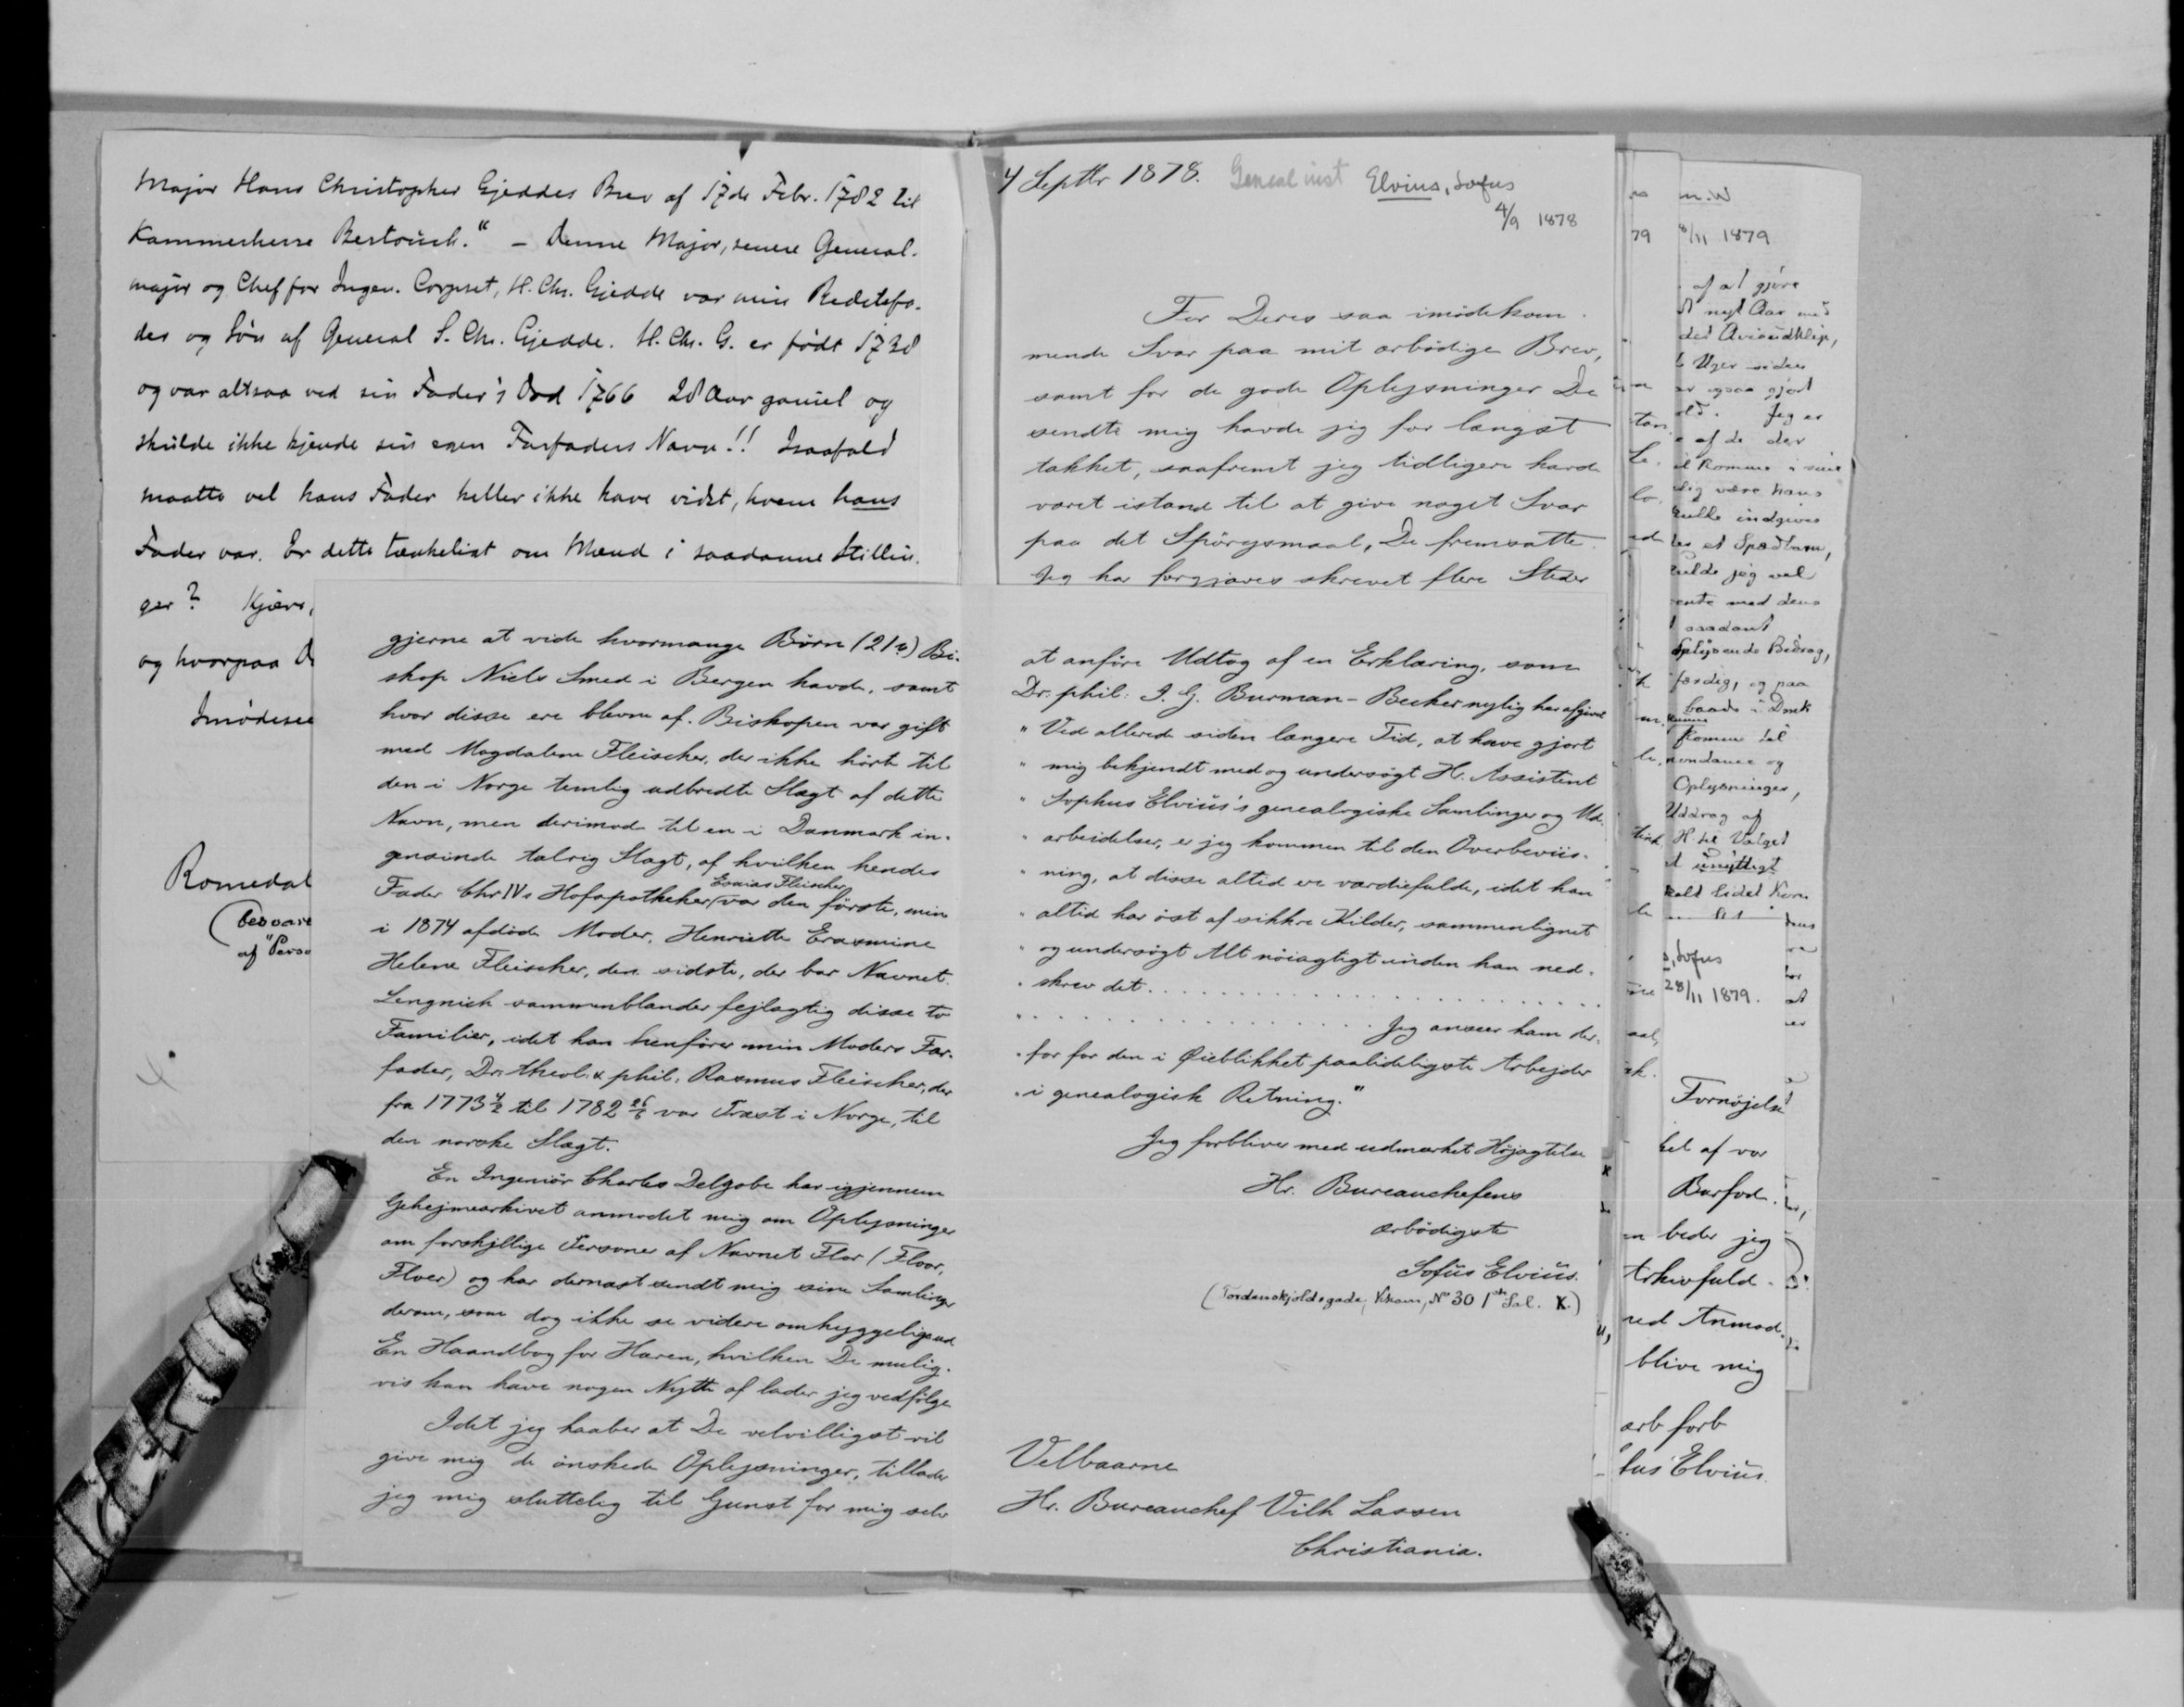 Major Hans Christopher Gjeddes Brev af 17de Febr. 1782 til
Kammerherre Bertouch." – Denne Major, senere General-
major og Chef for Ingen. Corpset, H. Chr. Gjedde var min Bedstefa-
der og Søn af General S. Chr. Gjedde. H. Chr. G. er født 1738
og var altsaa ved sin Fader's Død 1766 28 Aar gammel og
skulde ikke kjende sin egen Farfaders Navn!! Isaafald
maatte vel hans Fader heller ikke have vidst, hvem hans
Fader var. Er dette tænkeligt om Mænd i saadanne Stillin-
ger? Kjære,
og hvorpaa D
Imødesee
Romedal
(besvare
af "Perso
gjerne at vide hvormange Børn (21?) Bi-
skop Niels Smed i Bergen havde, samt
hvor disse ere blevne af. Biskopen var gift
med Magdalene Fleischer, der ikke hörte til
den i Norge temlig udbredte Slægt af dette
Navn, men derimod til en i Danmark in-
gensinde talrig Slægt, af hvilken hendes
Fader Chr IVs Hofapotheker Esaias Fleischer var den förste, min
i 1874 afdöde Moder, Henriette Erasmine
Helene Fleischer, den sidste, der bar Navnet.
Lengnick sammenblander fejlagtig disse to
Familier, idet han henförer min Moders Far-
fader, Dr. theol. & phil. Rasmus Fleischer, der
fra 1773 4/2 til 1782 26/6 var Præst i Norge, til
den norske Slægt.
En Ingeniör Charles Delgobe har igjennem
Gehejmearkivet anmodet mig om Oplysninger
om forskjellige Personer af Navnet Flor (Floor,
Floer) og har dernæst sendt mig sine Samlinger
derom, som dog ikke se videre omhyggelige ud
En Haandbog for Hæren, hvilken De mulig-
vis kan have nogen Nytte af lader jeg vedfölge
Idet jeg haaber at De velvilligst vil
give mig de önskede Oplysninger, tillader
jeg mig sluttelig til Gunst for mig selv
4 Septbr 1878. Geneal inst Elvius, Sofus
4/9 1878
For Deres saa imödekom-
mende Svar paa mit ærbödige Brev,
samt for de gode Oplysninger De
sendte mig havde jeg for længst
takket, saafremt jeg tidligere havde
været istand til at give noget Svar
paa det Spörgsmaal, De fremsatte.
Jeg har forgjæves skrevet flere Steder
at anföre Udtog af en Erklæring, som
Dr. phil: I. G. Burman-Becker nylig har afgivet
" Ved allerede siden længere Tid, at have gjort
" mig bekjendt med og undersögt H. Assistent
" Sophus Elvius's genealogiske Samlinger og Ud-
" arbeidelser, er jeg kommen til den Overbeviis-
" ning, at disse altid ere værdiefulde, idet han
" altid har öst af sikkre Kilder, sammenlignet
" og undersögt Alt nöiagtigt inden han ned-
" skrev det . . . . . . . . . . . . . . . .
" . . . . . . . . . . . . Jeg anseer ham der-
" for for den i Øieblikket paalideligste Arbejder
" i genealogisk Retning."
Jeg forbliver med udmærket Höjagtelse
Hr. Bureauchefens
ærbödigste
Sofus Elvius.
(Tordenskjoldsgade, Khavn, No 30 1ste Sal. K.)
Velbaarne
Hr. Bureauchef Vilh Lassen
Christiania.
79
8/11 1879
af at gjøre
et nyt Aar
Uger siden
ar ogsaa gjort
Jeg er
e af de der
lig være hans
indgives
et Spædbarn,
ulde jeg vel
ente med dens
saadant
færdig, og paa
komme til
Oplysninger,
Uddrag af
unyttigt
s, Sofus
28/11 1879.
Fornøjelse
let af vor
Barfod.
n beder jeg
Arkivfuld-
ved Anmod-
blive mig
ærb forb
fus Elvius.